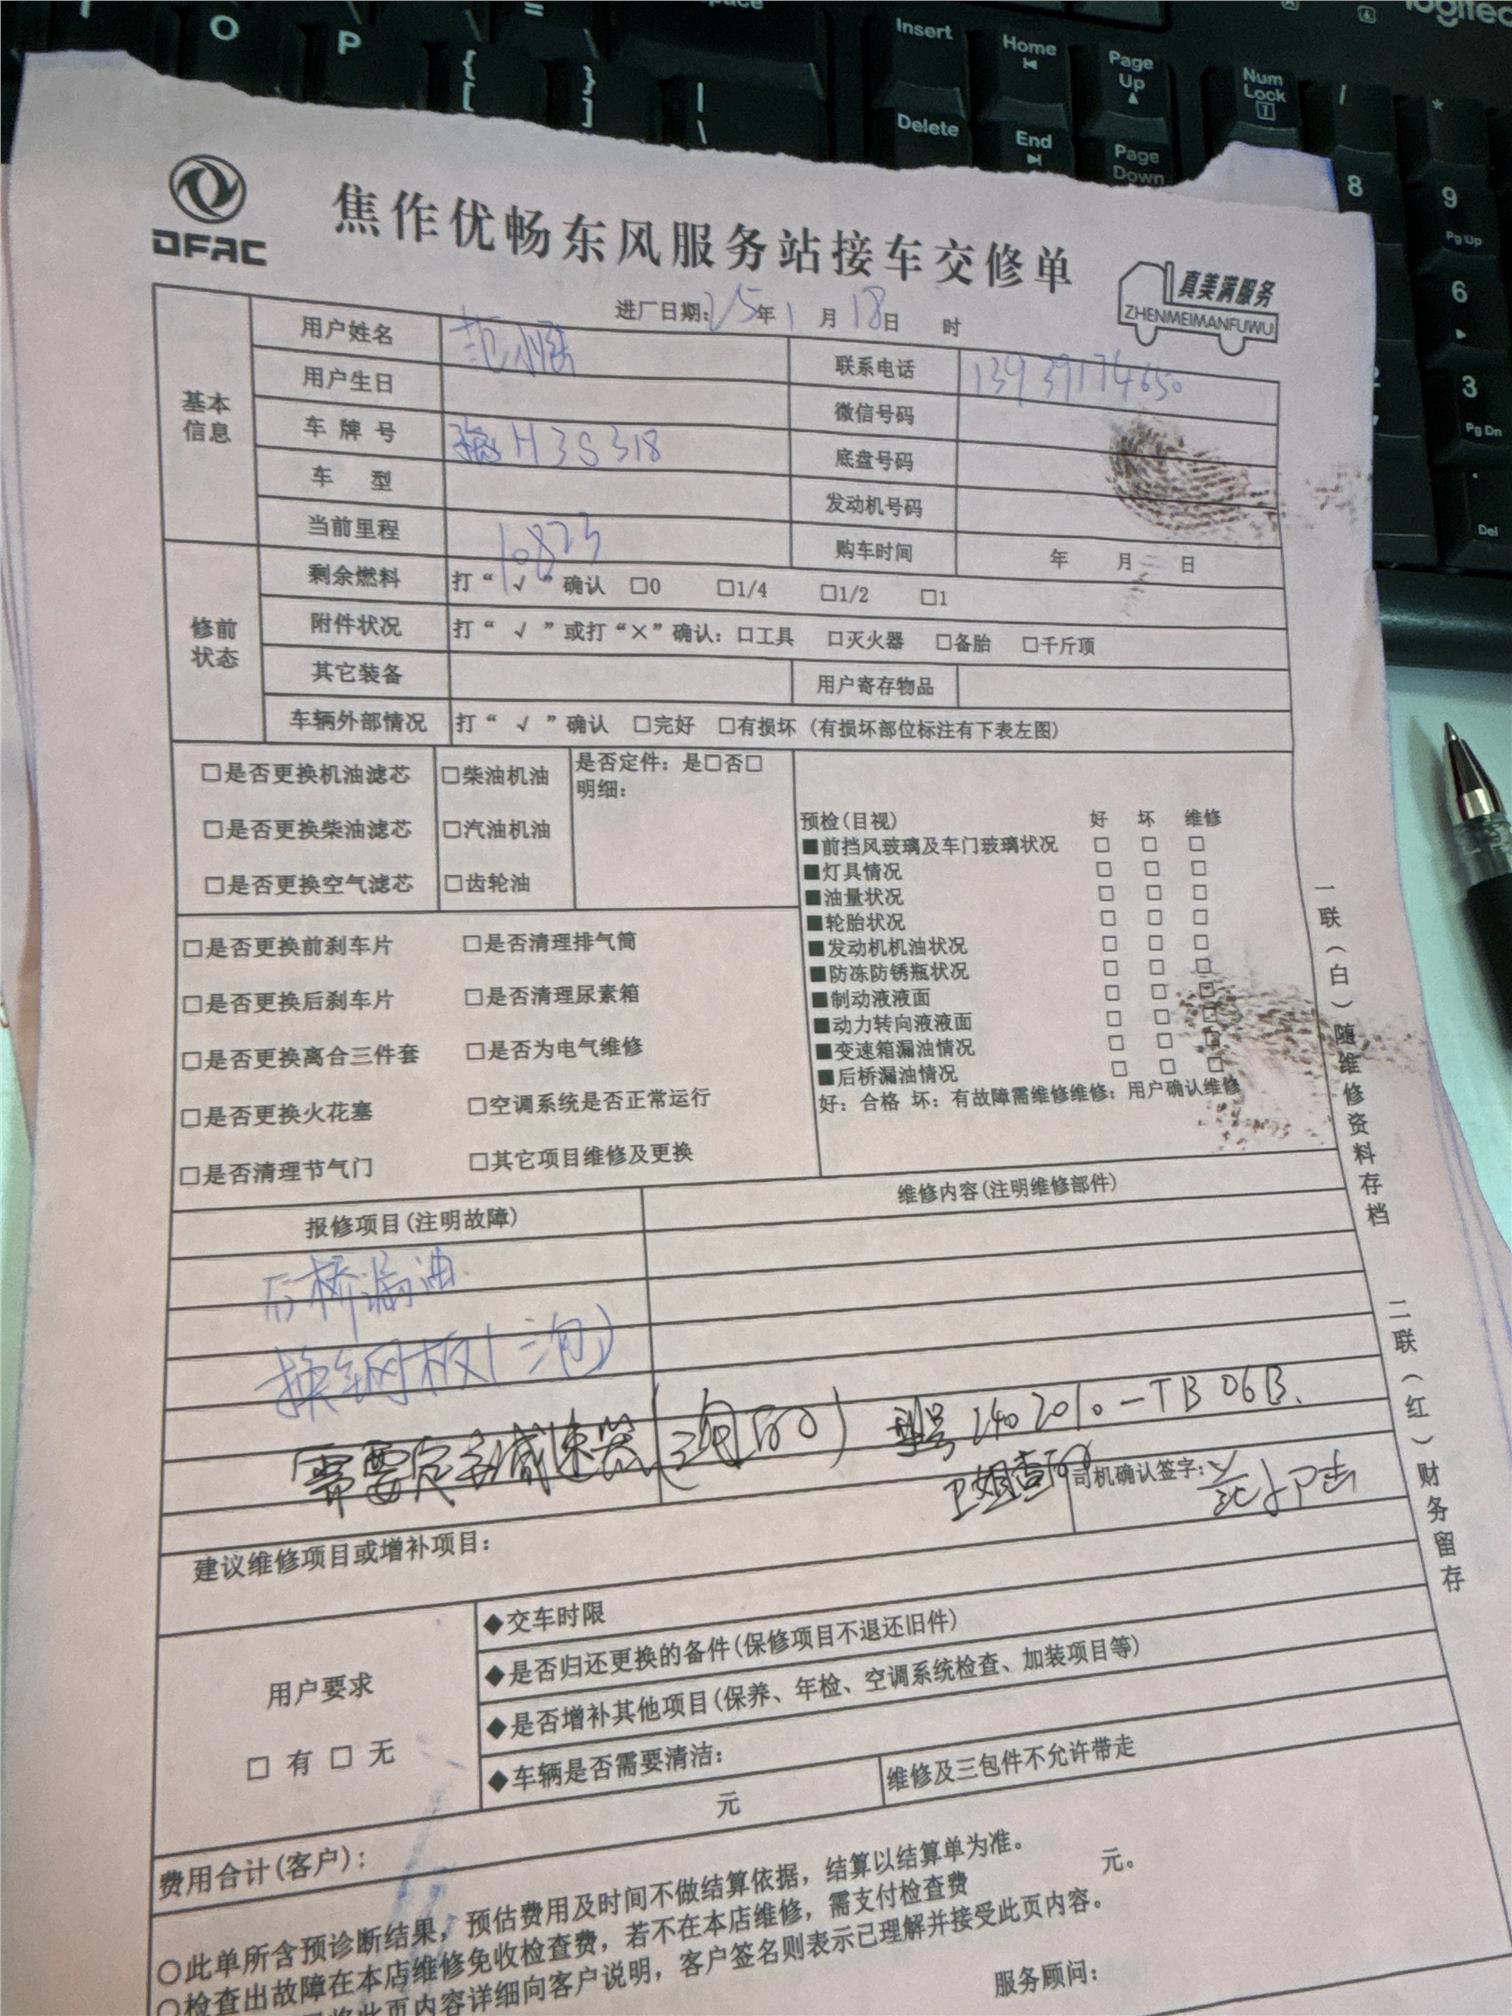 O P { [ } ] | \ = Insert Delete Home End Page Up Page Down Num Lock / * 8 9 Pg Up 6 3 Pg Dn Del
logitec
DFAC
焦作优畅东风服务站接车交修单
真美满服务
ZHENMEIMANFUWU
进厂日期:25年1月18日 时
基本信息
用户姓名 范 联系电话 13939174650
用户生日 微信号码
车牌号 豫H3S318 底盘号码
车 型 发动机号码
当前里程 10823 购车时间 年 月 日
修前状态
剩余燃料 打“√”确认 □0 □1/4 □1/2 □1
附件状况 打“√”或打“×”确认:□工具 □灭火器 □备胎 □千斤顶
其它装备 用户寄存物品
车辆外部情况 打“√”确认 □完好 □有损坏(有损坏部位标注有下表左图)
□是否更换机油滤芯 □柴油机油 是否定件:是□否□
明细:
□是否更换柴油滤芯 □汽油机油
□是否更换空气滤芯 □齿轮油
□是否更换前刹车片 □是否清理排气筒
□是否更换后刹车片 □是否清理尿素箱
□是否更换离合三件套 □是否为电气维修
□是否更换火花塞 □空调系统是否正常运行
□是否清理节气门 □其它项目维修及更换
预检(目视) 好 坏 维修
■前挡风玻璃及车门玻璃状况 □ □ □
■灯具情况 □ □ □
■油量状况 □ □ □
■轮胎状况 □ □ □
■发动机机油状况 □ □ □
■防冻防锈瓶状况 □ □ □
■制动液液面 □ □ □
■动力转向液液面 □ □ □
■变速箱漏油情况 □ □ □
■后桥漏油情况 □ □ □
好:合格 坏:有故障需维修维修:用户确认维修
报修项目(注明故障) 维修内容(注明维修部件)
后桥漏油
换钢板(三包)
需要定主减速器 型号2402010-TB06B.
卫姐查
司机确认签字: 范
建议维修项目或增补项目:
用户要求
□ 有 □ 无
◆交车时限
◆是否归还更换的备件(保修项目不退还旧件)
◆是否增补其他项目(保养、年检、空调系统检查、加装项目等)
◆车辆是否需要清洁: 维修及三包件不允许带走
费用合计(客户): 元
○此单所含预诊断结果,预估费用及时间不做结算依据,结算以结算单为准。
○检查出故障在本店维修免收检查费,若不在本店维修,需支付检查费 元。
此页内容详细向客户说明,客户签名则表示已理解并接受此页内容。
服务顾问:
一联(白)随维修资料存档
二联(红)财务留存